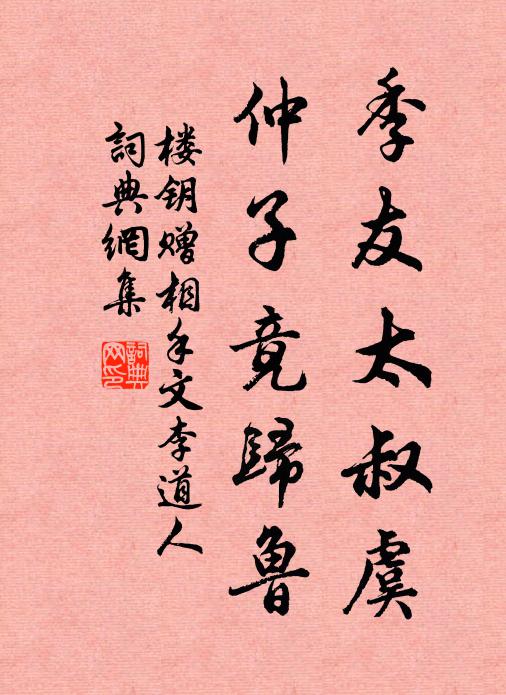 季友太叔虞
仲子竟歸魯
楼钥赠相手文李道人
詞典網集
詞典网印